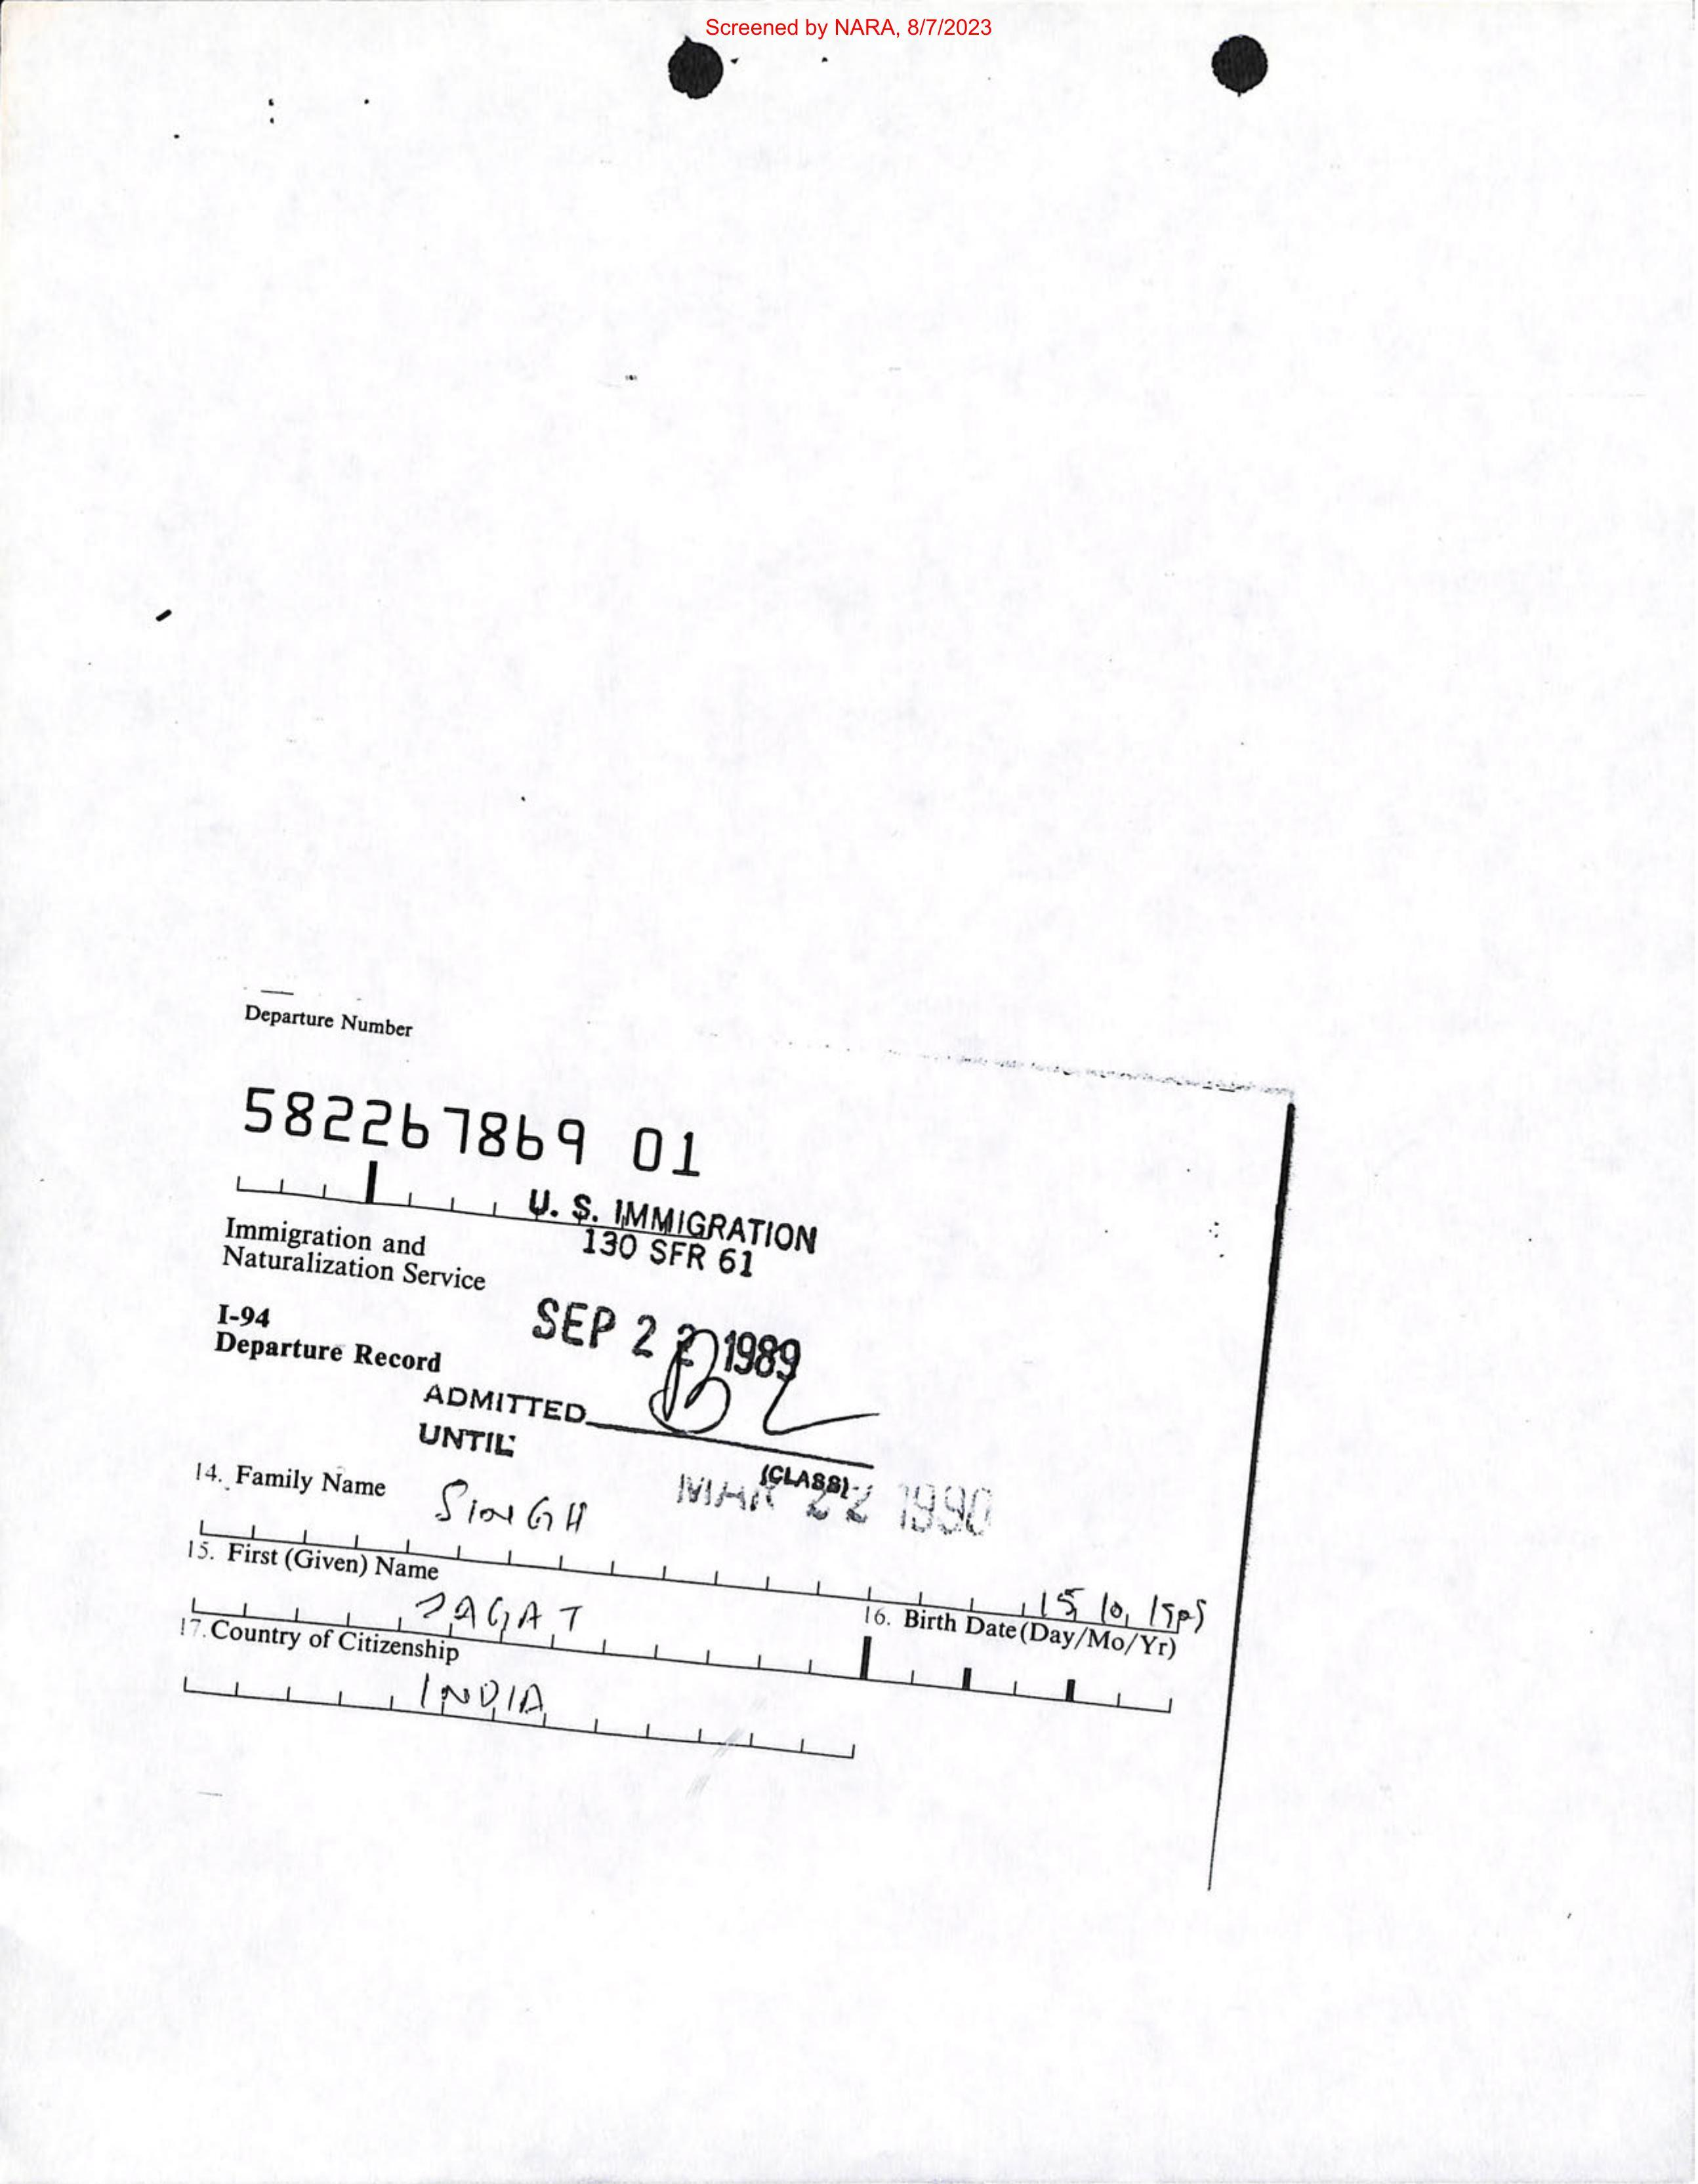 Screened by NARA, 8/7/2023
Departure Number
582267869 01
U. S. IMMIGRATION
130 SFR 61
Immigration and
Naturalization Service
I-94
Departure Record
SEP 2 2 1989
ADMITTED
UNTIL
(CLASS)
MAR 22 1990
14. Family Name
SINGH
15. First (Given) Name
JAGAT
16. Birth Date (Day/Mo/Yr)
15 10
17. Country of Citizenship
INDIA